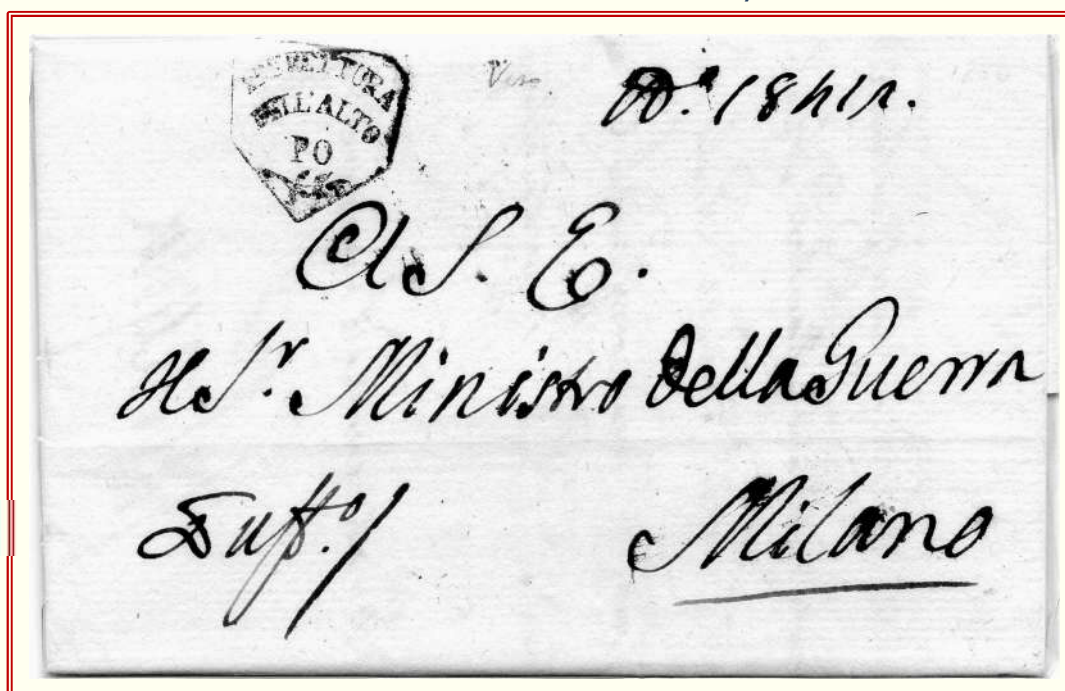 PREFETTURA
DELL'ALTO
PO
Vero
A S. E.
Il S.r Ministro della Guerra
D'uff.o/
Milano